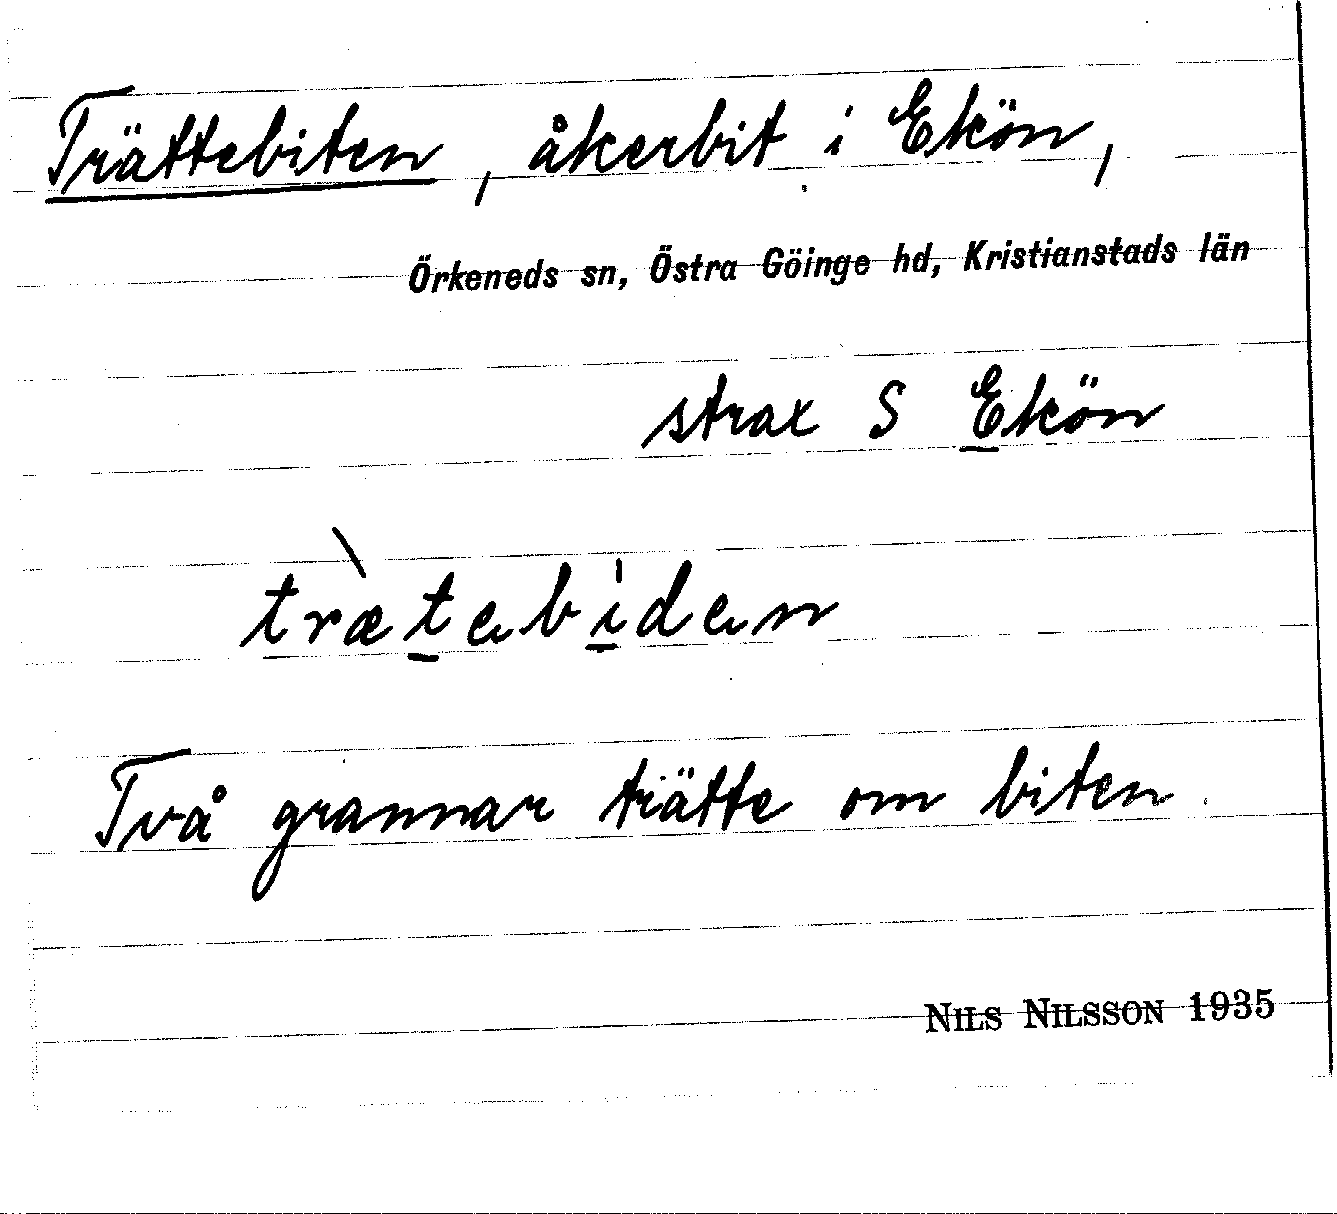 Trättebiten, åkerbit i Ekön,
Örkeneds sn, Östra Göinge hd, Kristianstads län
strax S Ekön
træ̀tebi̍den
Två grannar trätte om biten.
NILS NILSSON 1935